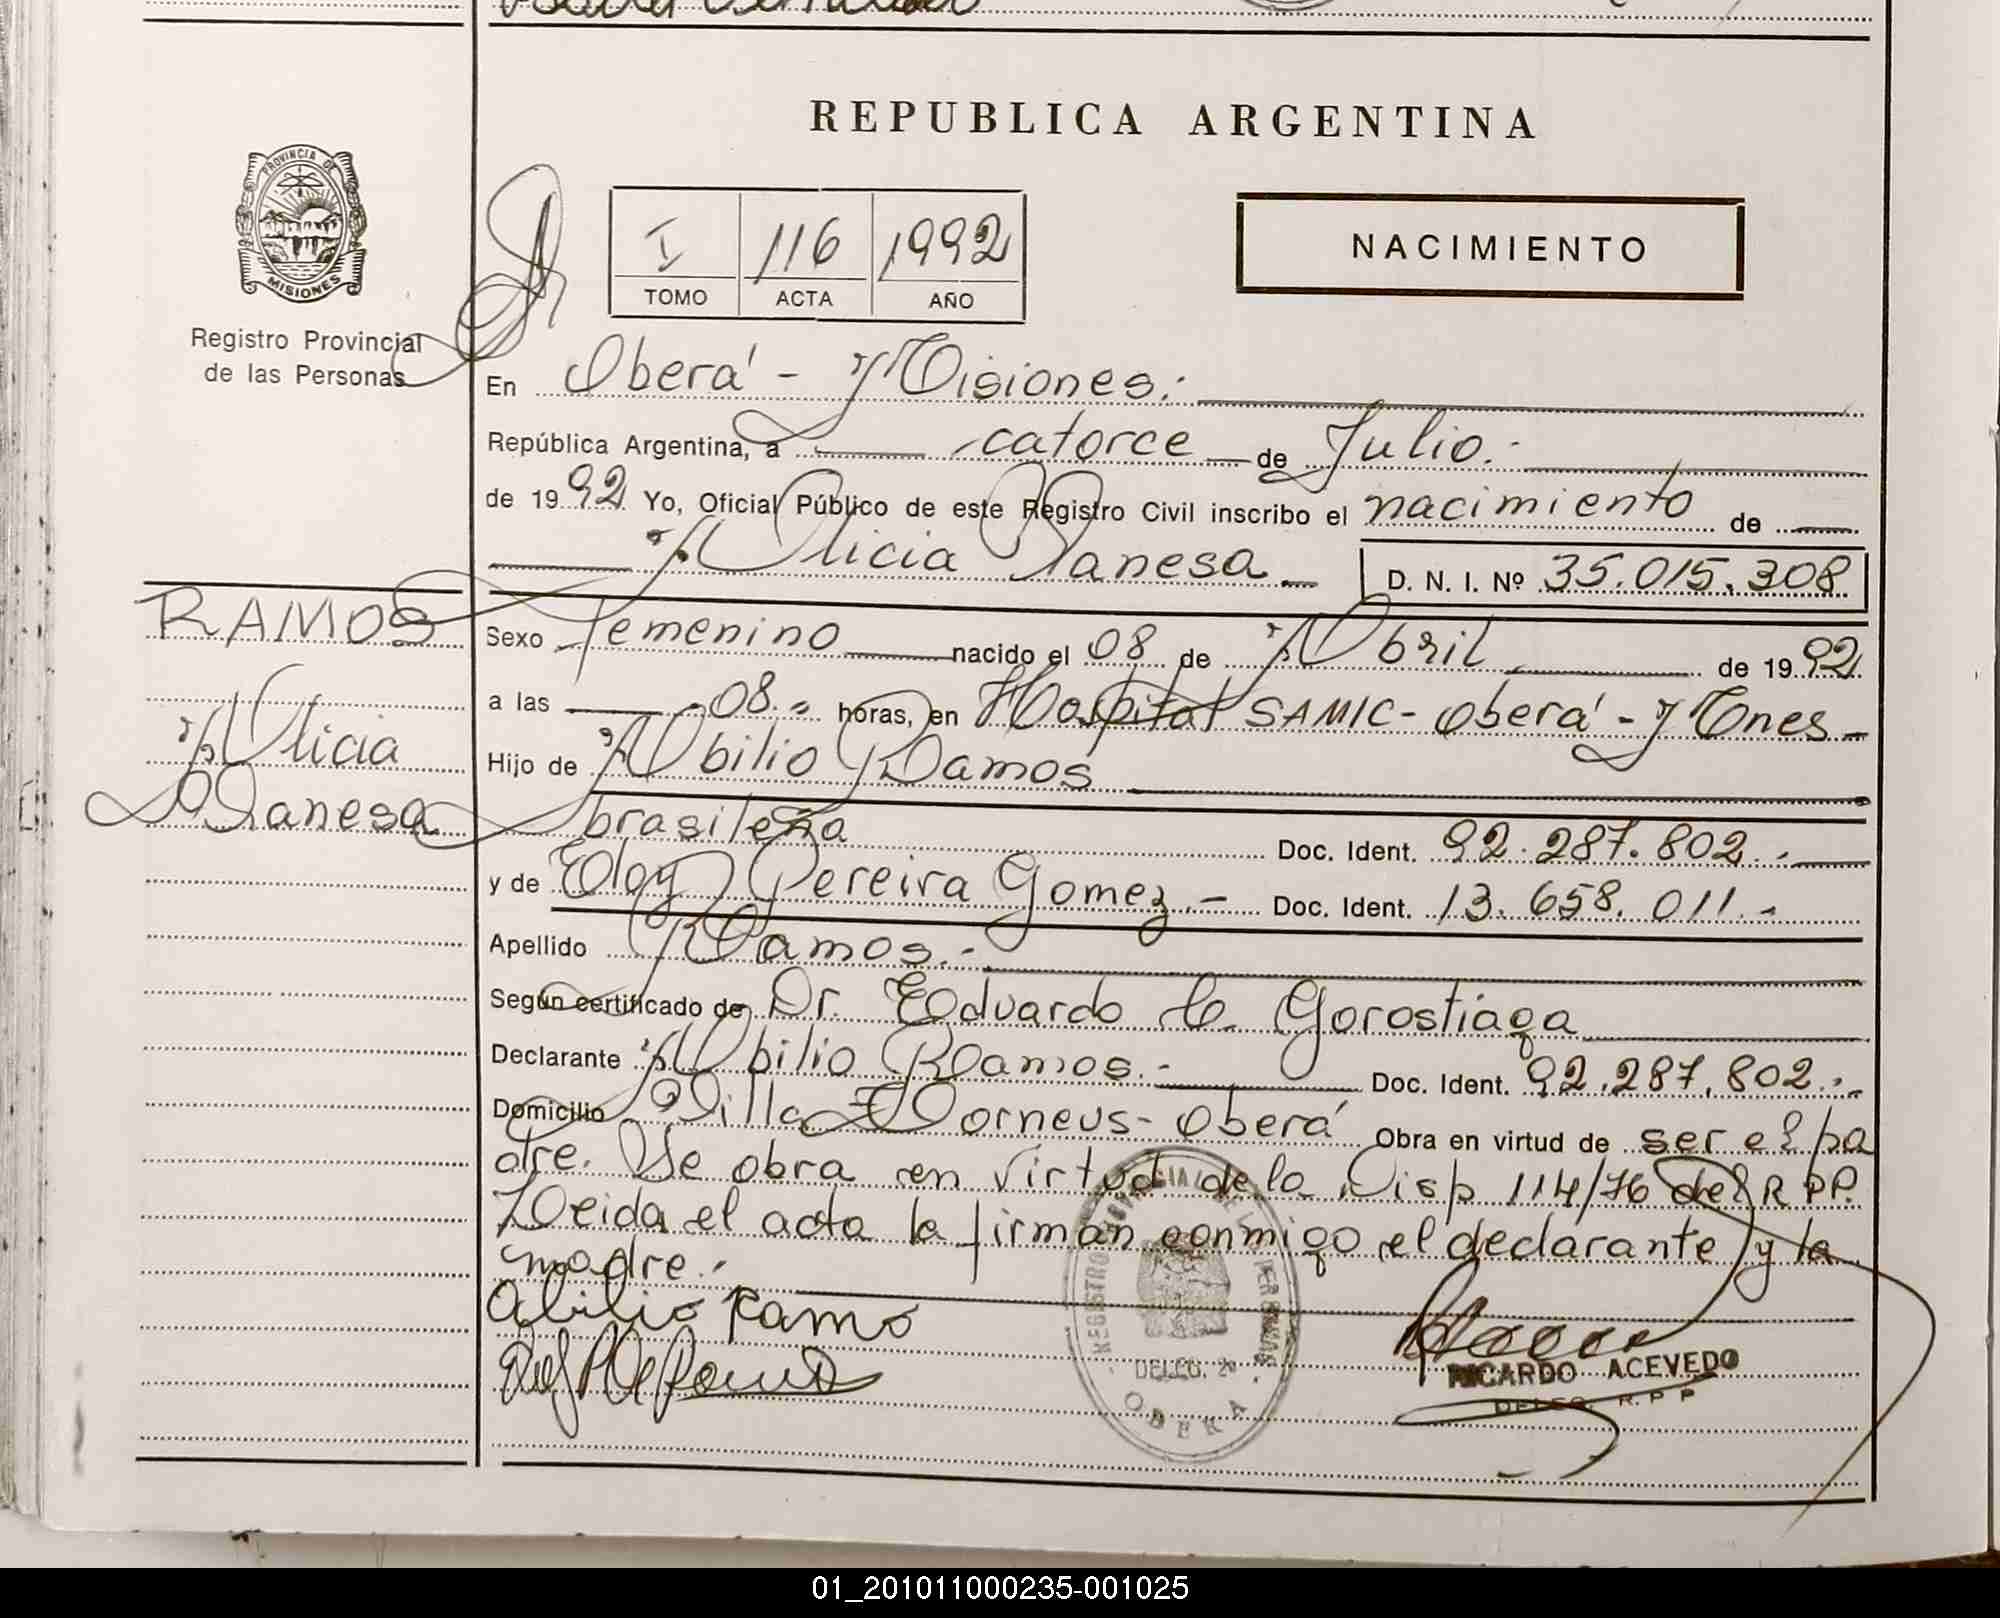 REPUBLICA ARGENTINA
PROVINCIA DE
MISIONES
Registro Provincial
de las Personas
I 116 1992
TOMO ACTA AÑO
NACIMIENTO
En Oberá - Misiones.
República Argentina, a catorce de Julio.-
de 1992 Yo, Oficial Público de este Registro Civil inscribo el nacimiento de
Alicia Vanesa D. N. I. Nº 35.015.308
RAMOS
Alicia
Vanesa
Sexo Femenino nacido el 08 de Abril de 1992
a las 08.- horas, en Hospital SAMIC - Oberá - Mnes -
Hijo de Abilio Ramos
brasileña Doc. Ident. 92.287.802.-
y de Eloy Pereira Gomez.- Doc. Ident. 13.658.011.-
Apellido Ramos.-
Según certificado de Dr. Eduardo C. Gorostiaga
Declarante Abilio Ramos.- Doc. Ident. 92.287.802.-
Domicilio Villa Horneus - Oberá Obra en virtud de ser el pa
dre. Se obra en virtud de la Disp 114/76 del R PP.
Leida el acta la firman conmigo el declarante y la
madre.-
abilio Ramo
REGISTRO PROVINCIAL DE LAS PERSONAS
DELEG. 2ª
OBERA
RICARDO ACEVEDO
DELEG. R. P P
01_201011000235-001025